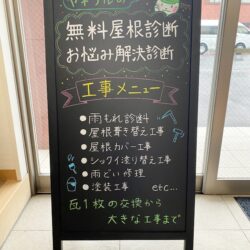 無料屋根診断
お悩み解決診断
工事メニュー
● 雨もれ診断
● 屋根葺き替え工事
● 屋根カバー工事
● シックイ塗り替え工事
● 雨どい修理
● 塗装工事 etc...
瓦1枚の交換から
大きな工事まで